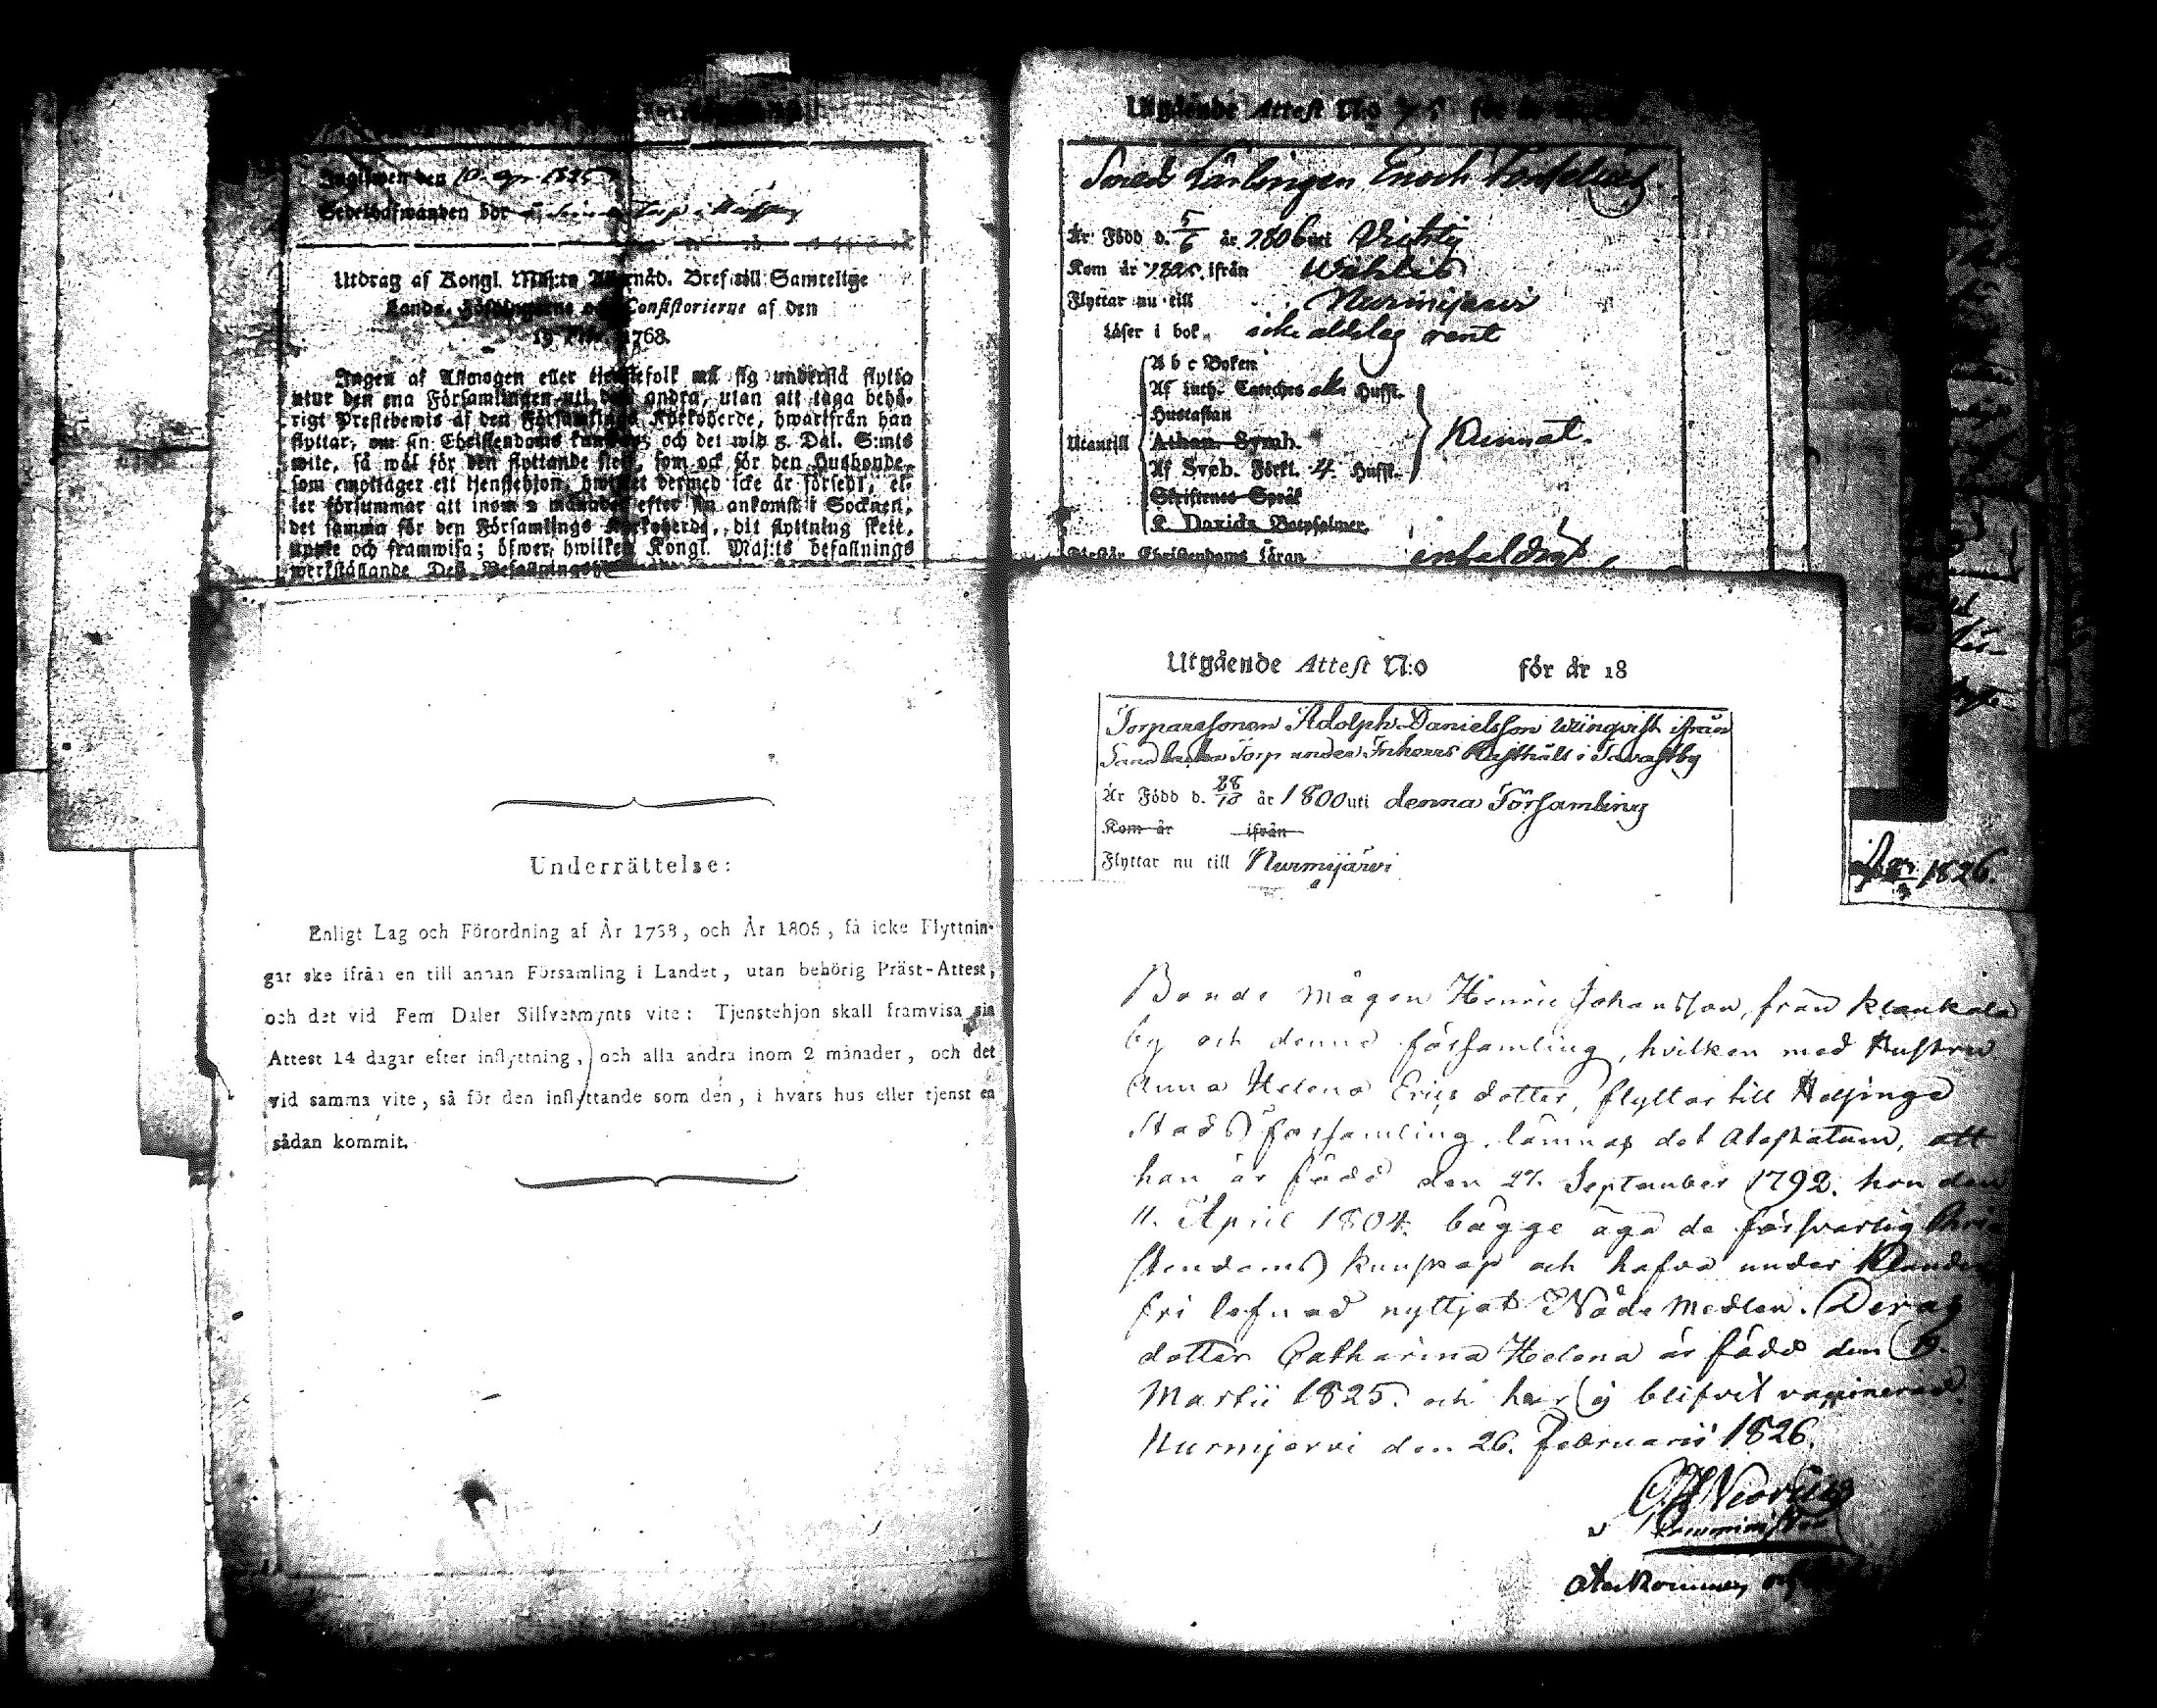 den 10. apr. 1825
Utdrag af Kongl. Maj:ts Nåd. Bref till Samtelige
Consistorierne af den
1768.
Ingen af Allmogen eller tjenstefolk må sig understå flytta
utur den ena Församlingen uti den andra, utan att taga behö-
rigt Prestebewis af den Församlings Kyrkoherde, hwarifrån han
flyttar, om sin Christendoms kunskap; och det wid 5. Dal. S:mts
wite, så wäl för den flyttande sjelf, som ock för den Husbonde,
som emottager ett tjenstehjon, hwilket dermed icke är försedt, el-
ler försummar att inom 2 månader efter sin ankomst i Socknen,
det samma för den Församlings Kyrkoherde, dit flyttning skett,
och framwisa; öfwer hwilket Kongl. Maj:ts befallnings
werkställande Deß
Utgående Attest N:o
Enoch
Är Född d. 5/6 år 1806 uti Vichtis
Kom år ifrån
Flyttar nu till Nurmijärvi
Läser i bok icke aldeles rent
A b c Boken
Af Luth. Cateches alla Hufst.
Hustaflan
Utantill Athan. Symb. Kunnat.
Af Sveb. Förkl. 4 Hufst.
Skriftenes Språk
K. Davids Botpsalmer
Förstår Christendoms Läran enfaldigt
Utgående Attest N:o för år 18
Torparesonen Adolph Danielsson ifrån
Torp under Inhorrs Rusthåll i Tavastby
Är Född d. 28/10 år 1800 uti denna Församling
Kom år ifrån
Flyttar nu till Nurmijärvi
Underrättelse:
Enligt Lag och Förordning af År 1768, och År 1805, få icke Flyttnin-
gar ske ifrån en till annan Församling i Landet, utan behörig Präst-Attest,
och det vid Fem Daler Silfvermynts vite: Tjenstehjon skall framvisa sin
Attest 14 dagar efter inflyttning, och alla andra inom 2 månader, och det
vid samma vite, så för den inflyttande som den, i hvars hus eller tjenst en
sådan kommit.
1826.
Bonde Mågen Henric Johansson, från Klaukala
by och denne församling, hvilken med Hustru
Anna Helena Erics dotter, flyttar till Helsinge
Stads församling, lämnas det Atestatum, att
han är född den 27. September 1792. hon den
11. April 1804. bägge äga de försvarlig Chri-
stendoms kunskap och hafva under Klander
fri lefnad nyttjat Nåde Medlen. Deras
dotter Catharina Helena är född den 19.
Martii 1825. och har ej blifvit vaccinerad.
Nurmijervi den 26. Februarii 1826.